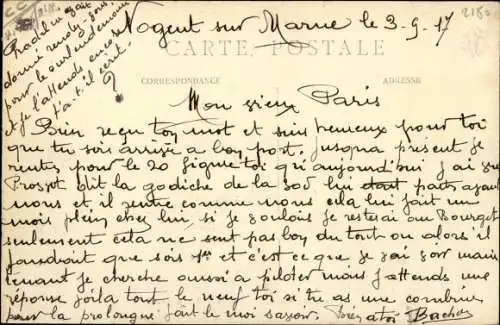 Nogent sur Marne le 3-9-17
CARTE POSTALE
CORRESPONDANCE
ADRESSE
m'avait
donné rendez-vous
pour le surlendemain
et je l'attends encore
t'a-t-il écrit
?
Mon vieux Paris
Bien reçu ton mot et suis heureux pour toi
que tu sois arrivé à bon port. Jusqu'à présent je
rentre pour le 20 figure toi qu'aujourd'hui j'ai vu
dit la godiche de la 302 lui parti avant
nous et il rentre comme nous cela lui fait un
mois plein chez lui, si je voulais je resterai au Bourget
seulement cela ne sent pas bon du tout ou alors il
faudrait que sois 1er et c'est ce que je vais voir main
tenant je cherche aussi à piloter mais j'attends une
réponse voilà tout le neuf toi si tu as une combine
pour la prolongue fait le moi savoir. Bien à toi